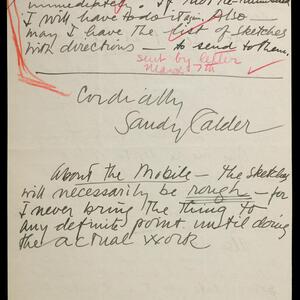 immediately. If not re-numbered
I will have to do it again. Also
may I have the list of sketches
with directions — to send to them.
sent by letter
March 7th
Cordially
Sandy Calder
About the Mobile — the sketches
will necessarily be rough — for
I never bring the thing to
any definite point until doing
the actual work